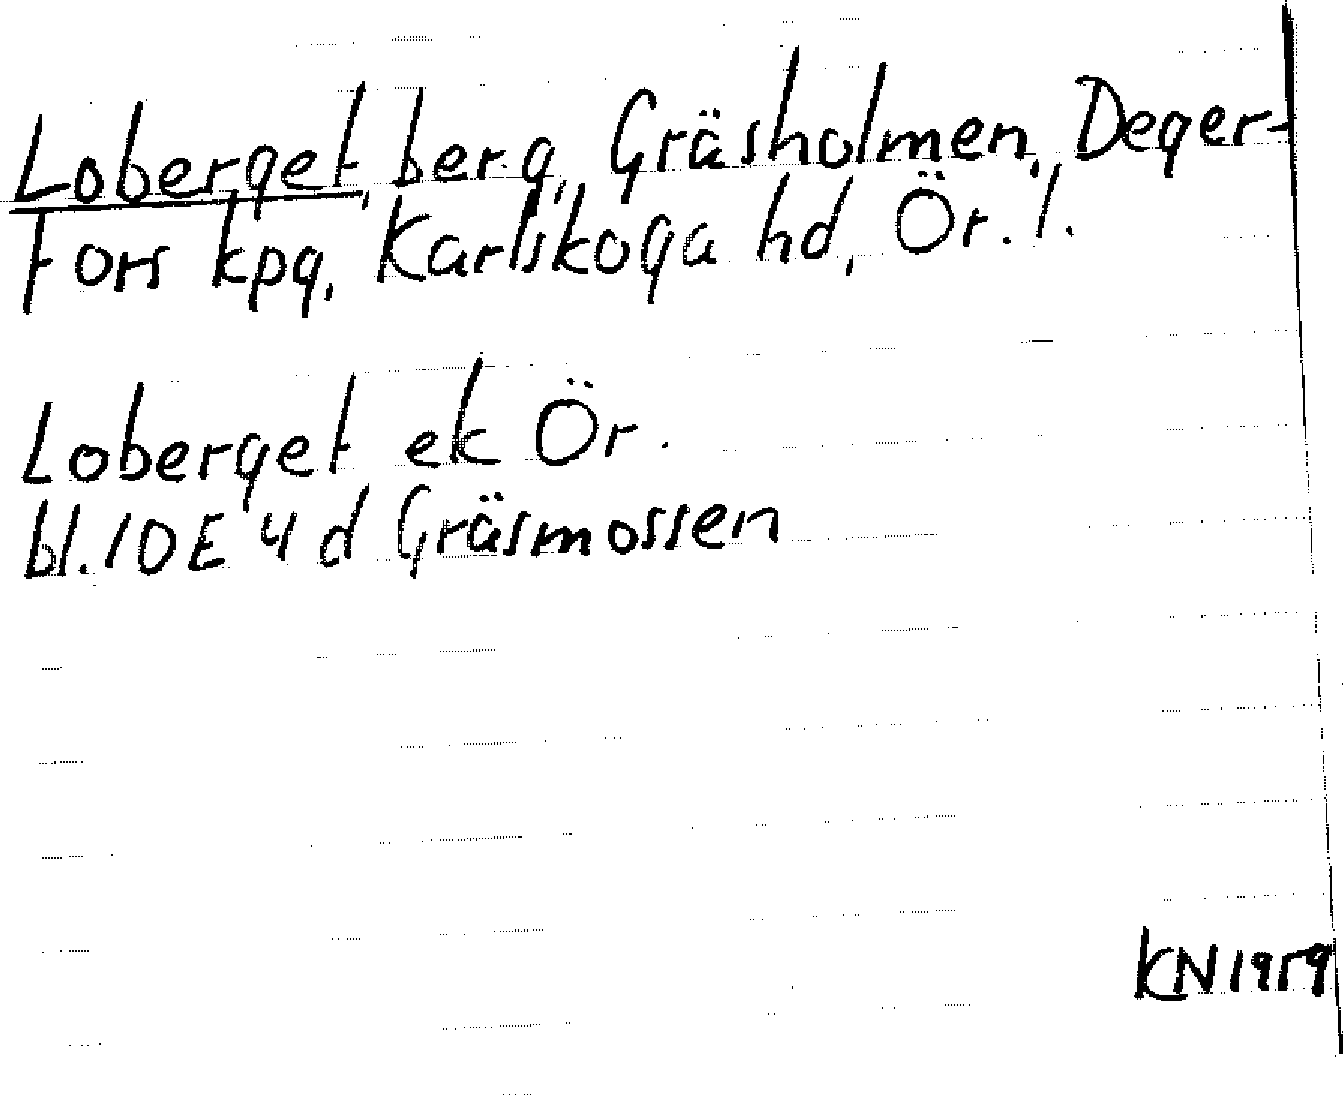 Loberget, berg, Gräsholmen, Deger-
fors kpg, Karlskoga hd, Ör. l.
Loberget ek Ör.
bl. 10E 4 d Gräsmossen
KN 1959